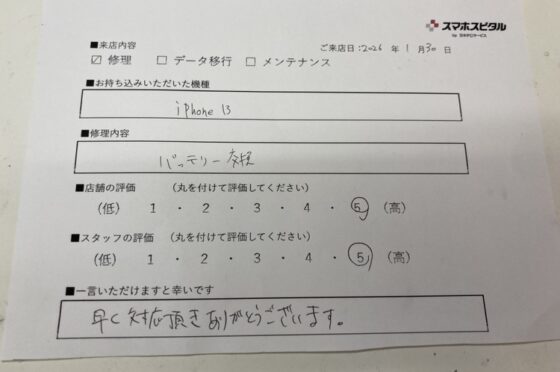 スマホスピタル
by 日本PCサービス
■来店内容
ご来店日:2026 年 1 月 30 日
☑ 修理 □ データ移行 □ メンテナンス
■お持ち込みいただいた機種
iPhone 13
■修理内容
バッテリー交換
■店舗の評価 (丸を付けて評価してください)
(低) 1 ・ 2 ・ 3 ・ 4 ・ 5 (高)
■スタッフの評価 (丸を付けて評価してください)
(低) 1 ・ 2 ・ 3 ・ 4 ・ 5 (高)
■一言いただけますと幸いです
早く対応頂きありがとうございます。